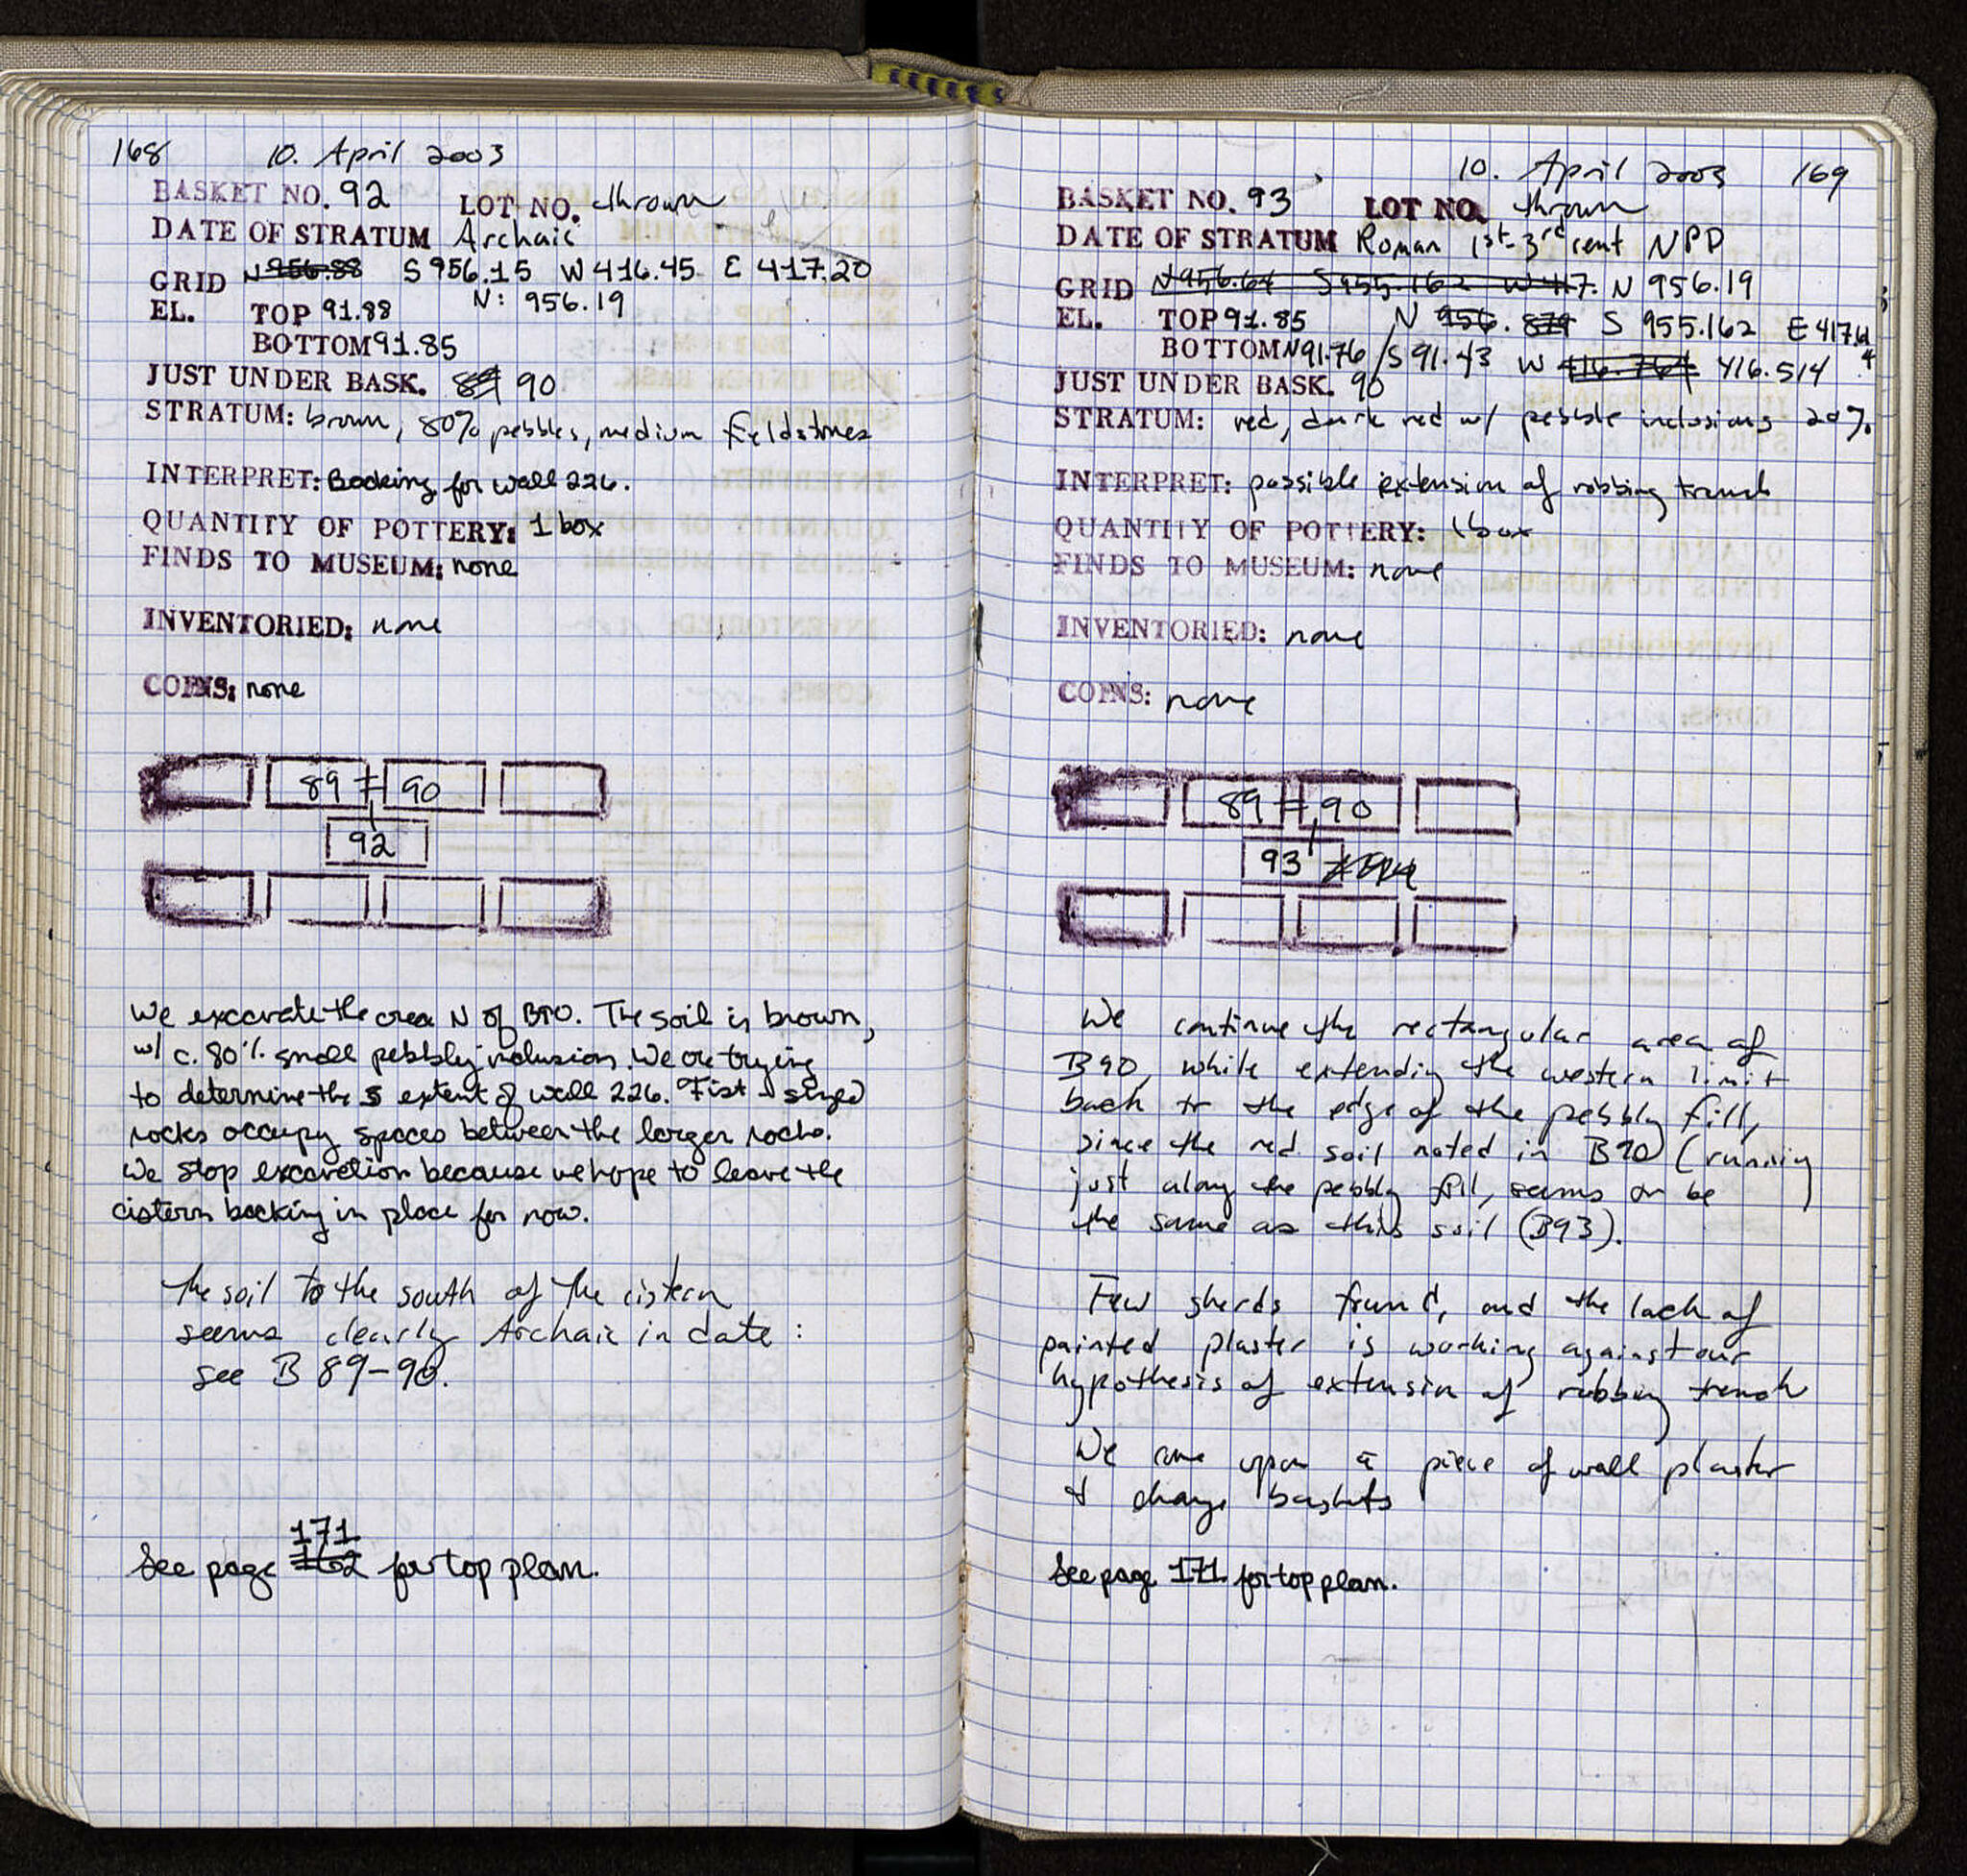 168 10. April 2003
BASKET NO. 92 LOT NO. thrown
DATE OF STRATUM Archaic
GRID N 956.88 S 956.15 W 416.45 E 417.20
EL. TOP 91.88 N: 956.19
BOTTOM 91.85
JUST UNDER BASK. 89 90
STRATUM: brown, 80% pebbles, medium fieldstones
INTERPRET: Backing for wall 226.
QUANTITY OF POTTERY: 1 box
FINDS TO MUSEUM: none
INVENTORIED: none
COINS: none
89 = 90
92
We excavate the area N of B90. The soil is brown,
w/ c. 80% small pebbly inclusion. We are trying
to determine the S extent of wall 226. Fist sized
rocks occupy spaces between the larger rocks.
We stop excavation because we hope to leave the
cistern backing in place for now.
The soil to the south of the cistern
seems clearly Archaic in date:
see B 89-90.
171
See page 162 for top plan.
10. April 2003 169
BASKET NO. 93 LOT NO. thrown
DATE OF STRATUM Roman 1st-3rd cent NPD
GRID N 956.64 S 955.162 W 417. N 956.19
EL. TOP 91.85 N 956. 879 S 955.162 E 417.61
BOTTOM N91.76/S 91.43 W 416.764 416.514 4
JUST UNDER BASK. 90
STRATUM: red, dark red w/ pebble inclusions 20%
INTERPRET: possible extension of robbing trench
QUANTITY OF POTTERY: 1 box
FINDS TO MUSEUM: none
INVENTORIED: none
COINS: none
89 = 90
93
We continue the rectangular area of
B90, while extending the western limit
back to the edge of the pebbly fill,
since the red soil noted in B90 (running
just along the pebbly fill, seems to be
the same as this soil (B93).
Few sherds found, and the lack of
painted plaster is working against our
hypothesis of extension of robbing trench
We come upon a piece of wall plaster
& change baskets
See page 171 for top plan.